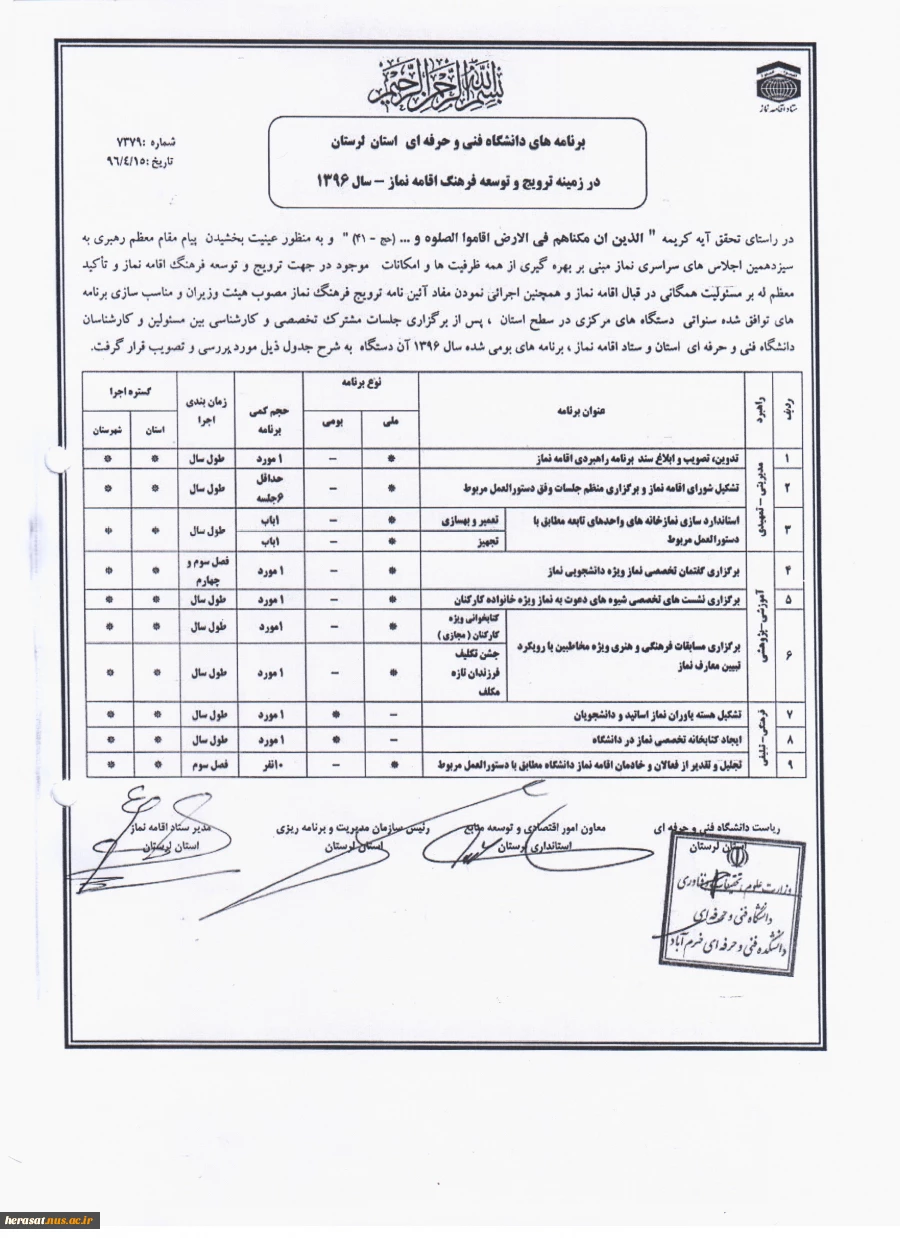 بسم الله الرحمن الرحیم
ستاد اقامه نماز
شماره :۷۳۷۹
تاریخ :۹۶/٤/۱٥
برنامه های دانشگاه فنی و حرفه ای استان لرستان
در زمینه ترویج و توسعه فرهنگ اقامه نماز – سال ۱۳۹۶
در راستای تحقق آیه کریمه " الذین ان مکناهم فی الارض اقاموا الصلوه و ... (حج – ۴۱) " و به منظور عینیت بخشیدن پیام مقام معظم رهبری به
سیزدهمین اجلاس های سراسری نماز مبنی بر بهره گیری از همه ظرفیت ها و امکانات موجود در جهت ترویج و توسعه فرهنگ اقامه نماز و تأکید
معظم له بر مسئولیت همگانی در قبال اقامه نماز و همچنین اجرائی نمودن مفاد آئین نامه ترویج فرهنگ نماز مصوب هیئت وزیران و مناسب سازی برنامه
های توافق شده سنواتی دستگاه های مرکزی در سطح استان ، پس از برگزاری جلسات مشترک تخصصی و کارشناسی بین مسئولین و کارشناسان
دانشگاه فنی و حرفه ای استان و ستاد اقامه نماز ، برنامه های بومی شده سال ۱۳۹۶ آن دستگاه به شرح جدول ذیل مورد بررسی و تصویب قرار گرفت.
ردیف راهبرد عنوان برنامه نوع برنامه حجم کمی برنامه زمان بندی اجرا گستره اجرا
ملی بومی استان شهرستان
مدیریتی – تمهیدی
۱ تدوین، تصویب و ابلاغ سند برنامه راهبردی اقامه نماز * – ۱ مورد طول سال * *
۲ تشکیل شورای اقامه نماز و برگزاری منظم جلسات وفق دستورالعمل مربوط * – حداقل ۶جلسه طول سال * *
۳ استاندارد سازی نمازخانه های واحدهای تابعه مطابق با دستورالعمل مربوط تعمیر و بهسازی * – ۱باب طول سال * *
تجهیز * – ۱باب
آموزشی–پژوهشی
۴ برگزاری گفتمان تخصصی نماز ویژه دانشجویی نماز * – ۱ مورد فصل سوم و چهارم * *
۵ برگزاری نشست های تخصصی شیوه های دعوت به نماز ویژه خانواده کارکنان * – ۱ مورد طول سال * *
۶ برگزاری مسابقات فرهنگی و هنری ویژه مخاطبین با رویکرد تبیین معارف نماز کتابخوانی ویژه کارکنان ( مجازی ) * – ۱مورد طول سال * *
جشن تکلیف فرزندان تازه مکلف * – ۱ مورد طول سال * *
فرهنگی – تبلیغی
۷ تشکیل هسته یاوران نماز اساتید و دانشجویان – * ۱ مورد طول سال * *
۸ ایجاد کتابخانه تخصصی نماز در دانشگاه – * ۱ مورد طول سال * *
۹ تجلیل و تقدیر از فعالان و خادمان اقامه نماز دانشگاه مطابق با دستورالعمل مربوط * – ۱۰نفر فصل سوم * *
ریاست دانشگاه فنی و حرفه ای
استان لرستان
معاون امور اقتصادی و توسعه منابع
استانداری لرستان
رئیس سازمان مدیریت و برنامه ریزی
استان لرستان
مدیر ستاد اقامه نماز
استان لرستان
وزارت علوم، تحقیقات و فناوری
دانشگاه فنی و حرفه ای
دانشکده فنی و حرفه ای خرم آباد
herasat.nus.ac.ir